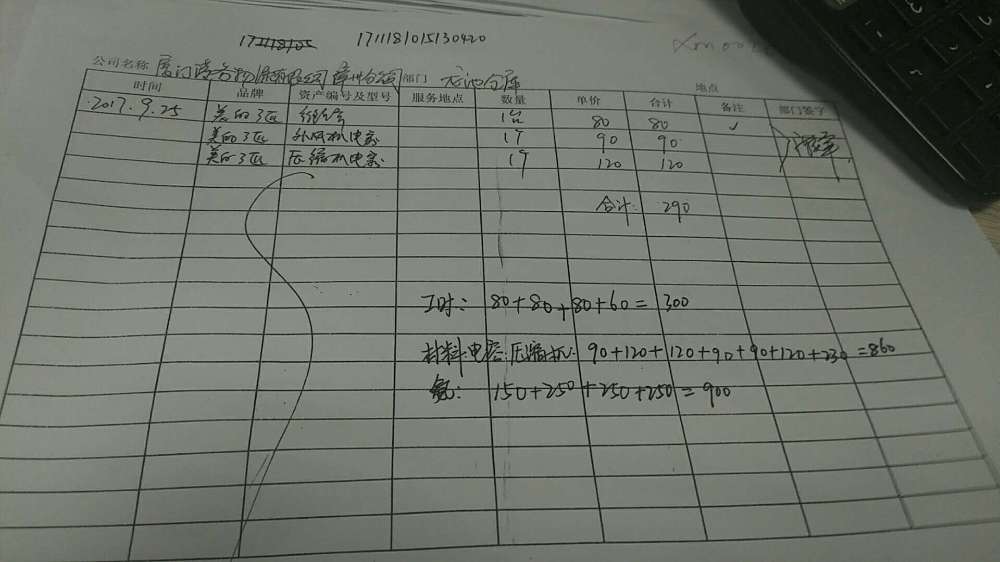 1711181015130420
公司名称 厦门 有限公司 漳州分公司 部门 龙池仓库 地点
时间 品牌 资产编号及型号 服务地点 数量 单价 合计 备注 部门签字
2017.9.25 美的3匹 1台 80 80 ✓
美的3匹 外风机电容 1个 90 90
美的3匹 压缩机电容 1个 120 120
合计: 290
工时: 80+80+80+60=300
材料:电容:压缩机: 90+120+120+90+90+120+230=860
氟: 150+250+250+250=900